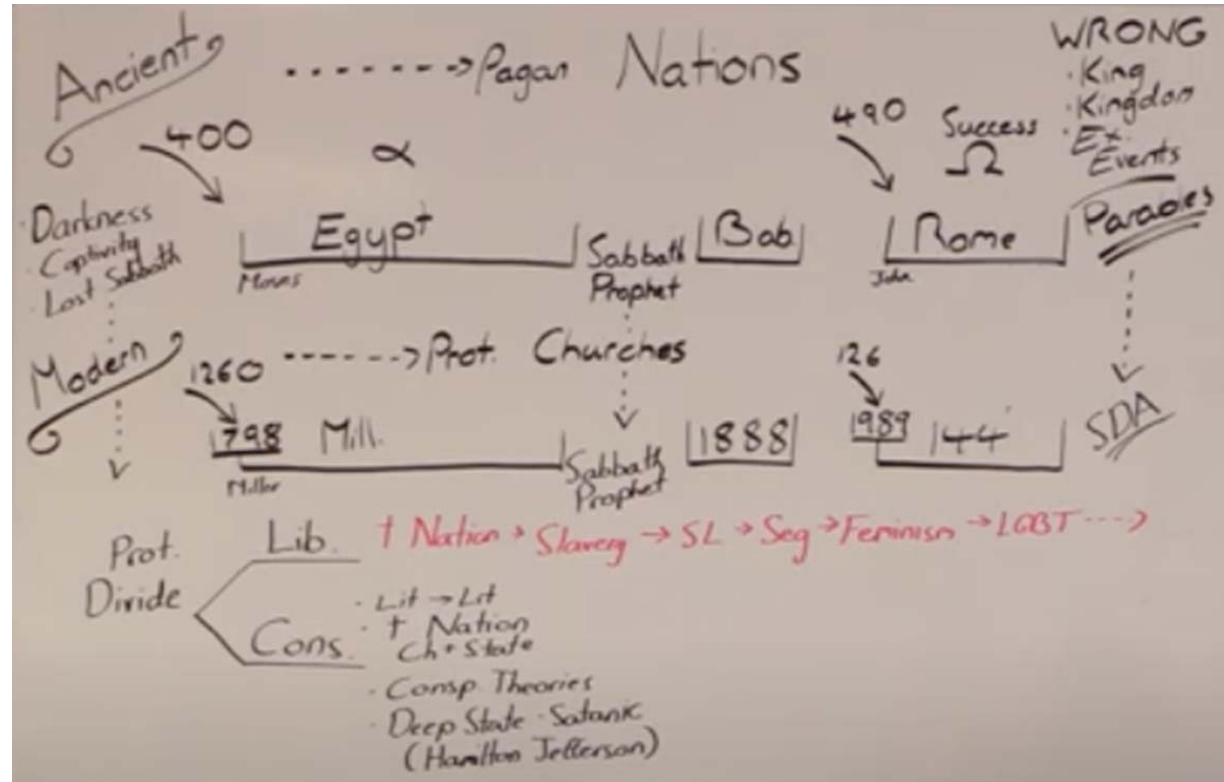 Ancient
-----> Pagan Nations
WRONG
· King
· Kingdom
· Ex.
Events
400
α
490
Success
Ω
· Darkness
· Captivity
· Lost Sabbath
Egypt
Moses
Sabbath
Prophet
Bab
Rome
John
Parables
Modern
1260 -----> Prot. Churches
126
1798
Mill.
Miller
Sabbath
Prophet
1888
1989
144
SDA
Prot.
Divide
Lib.
† Nation → Slavery → SL → Seg → Feminism → LGBT --->
Cons.
· Lit → Lit
· † Nation
Ch + State
· Consp. Theories
· Deep State - Satanic
(Hamilton Jefferson)